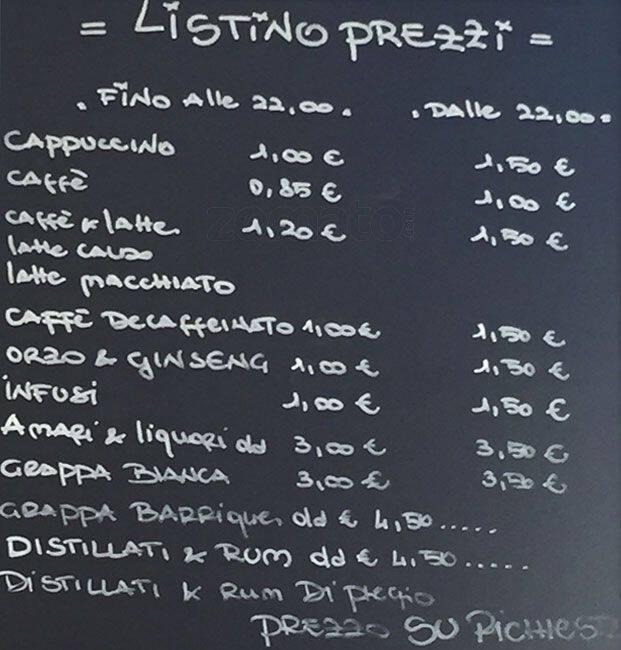 = LISTINO PREZZI =
. FINO Alle 22,00. . DAlle 22,00.
CAPPUCCINO 1,00 € 1,50 €
CAFFÈ 0,85 € 1,00 €
CAFFÈ & latte 1,20 € 1,50 €
latte CALDO
latte MACCHIATO
CAFFÈ DECAFFEINATO 1,00 € 1,50 €
ORZO & GINSENG 1,00 € 1,50 €
INFUSI 1,00 € 1,50 €
AMARI & liquori da 3,00 € 3,50 €
GRAPPA BIANCA 3,00 € 3,50 €
GRAPPA BARRIQUE da € 4,50.....
DISTILLATI & RUM da € 4,50.....
DISTILLATI & RUM DI pregio
PREZZO SU RICHIEST